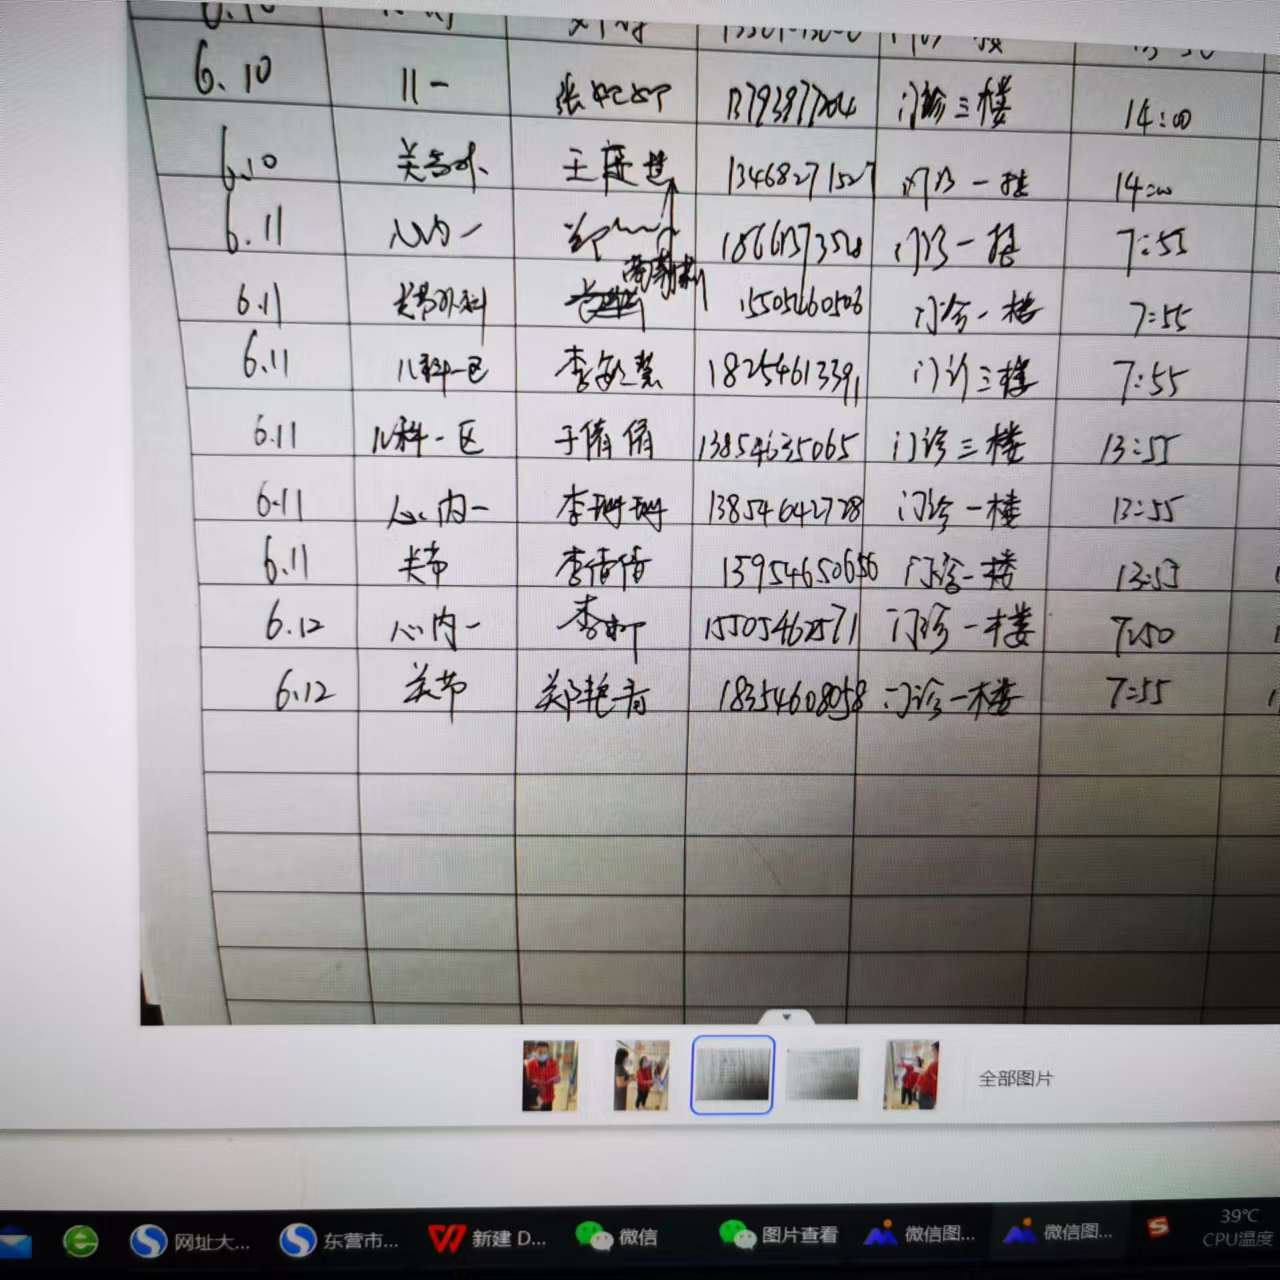 6.10 儿一 13793877204 门诊三楼 14:00
6.10 关节外 王 13468271527 门诊一楼 14:00
6.11 心内一 门诊一楼 7:55
6.11 关节外科 1505460506 门诊一楼 7:55
6.11 儿科一区 李敏慧 18254613391 门诊三楼 7:55
6.11 儿科一区 于倩倩 13854635065 门诊三楼 13:55
6.11 心内一 李珊珊 13854642728 门诊一楼 13:55
6.11 关节 李倩倩 13954650656 门诊一楼 13:55
6.12 心内一 李 15505462571 门诊一楼 7:50
6.12 关节 郑艳青 18354608058 门诊一楼 7:55
全部图片
网址大... 东营市... 新建 D... 微信 图片查看 微信图... 微信图... 39℃
CPU温度